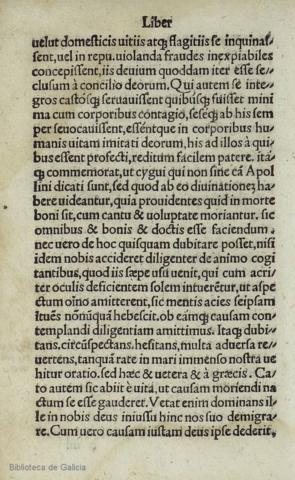 Liber
uelut domesticis uitiis atq; flagitiis se inquinas-
sent, uel in repu. uiolanda fraudes inexpiabiles
concepissent, iis deuium quoddam iter esse se-
clusum à concilio deorum. Qui autem se inte-
gros castosq; seruauissent quibusq; fuisset mini
ma cum corporibus contagio, seseq; ab his sem
per seuocauissent, essentque in corporibus hu-
manis uitam imitati deorum, his ad illos à qui-
bus essent profecti, reditum facilem patere. ita-
q; commemorat, ut cygni qui non sine cā Apol
lini dicati sunt, sed quod ab eo diuinationē ha-
bere uideantur, quia prouidentes quid in morte
boni sit, cum cantu & uoluptate moriantur. sic
omnibus & bonis & doctis esse faciendum.
nec uero de hoc quisquam dubitare posset, nisi
idem nobis accideret diligenter de animo cogi
tantibus, quod iis sæpe usu uenit, qui cum acri-
ter oculis deficientem solem intuerētur, ut aspe
ctum oīno amitterent, sic mentis acies seipsam
ītuēs nōnūquā hebescit. ob eamq; causam con-
templandi diligentiam amittimus. Itaq; dubi-
tans, circūspectans, hesitans, multa aduersa re-
uertens, tanquā rate in mari immenso nostra ue
hitur oratio. sed hæc & uetera & à græcis. Ca-
to autem sic abiit è uita, ut causam moriendi na
ctum se esse gauderet. Vetat enim dominans il-
le in nobis deus iniussu hinc nos suo demigra-
re. Cum uero causam iustam deus ipse dederit,
Biblioteca de Galicia